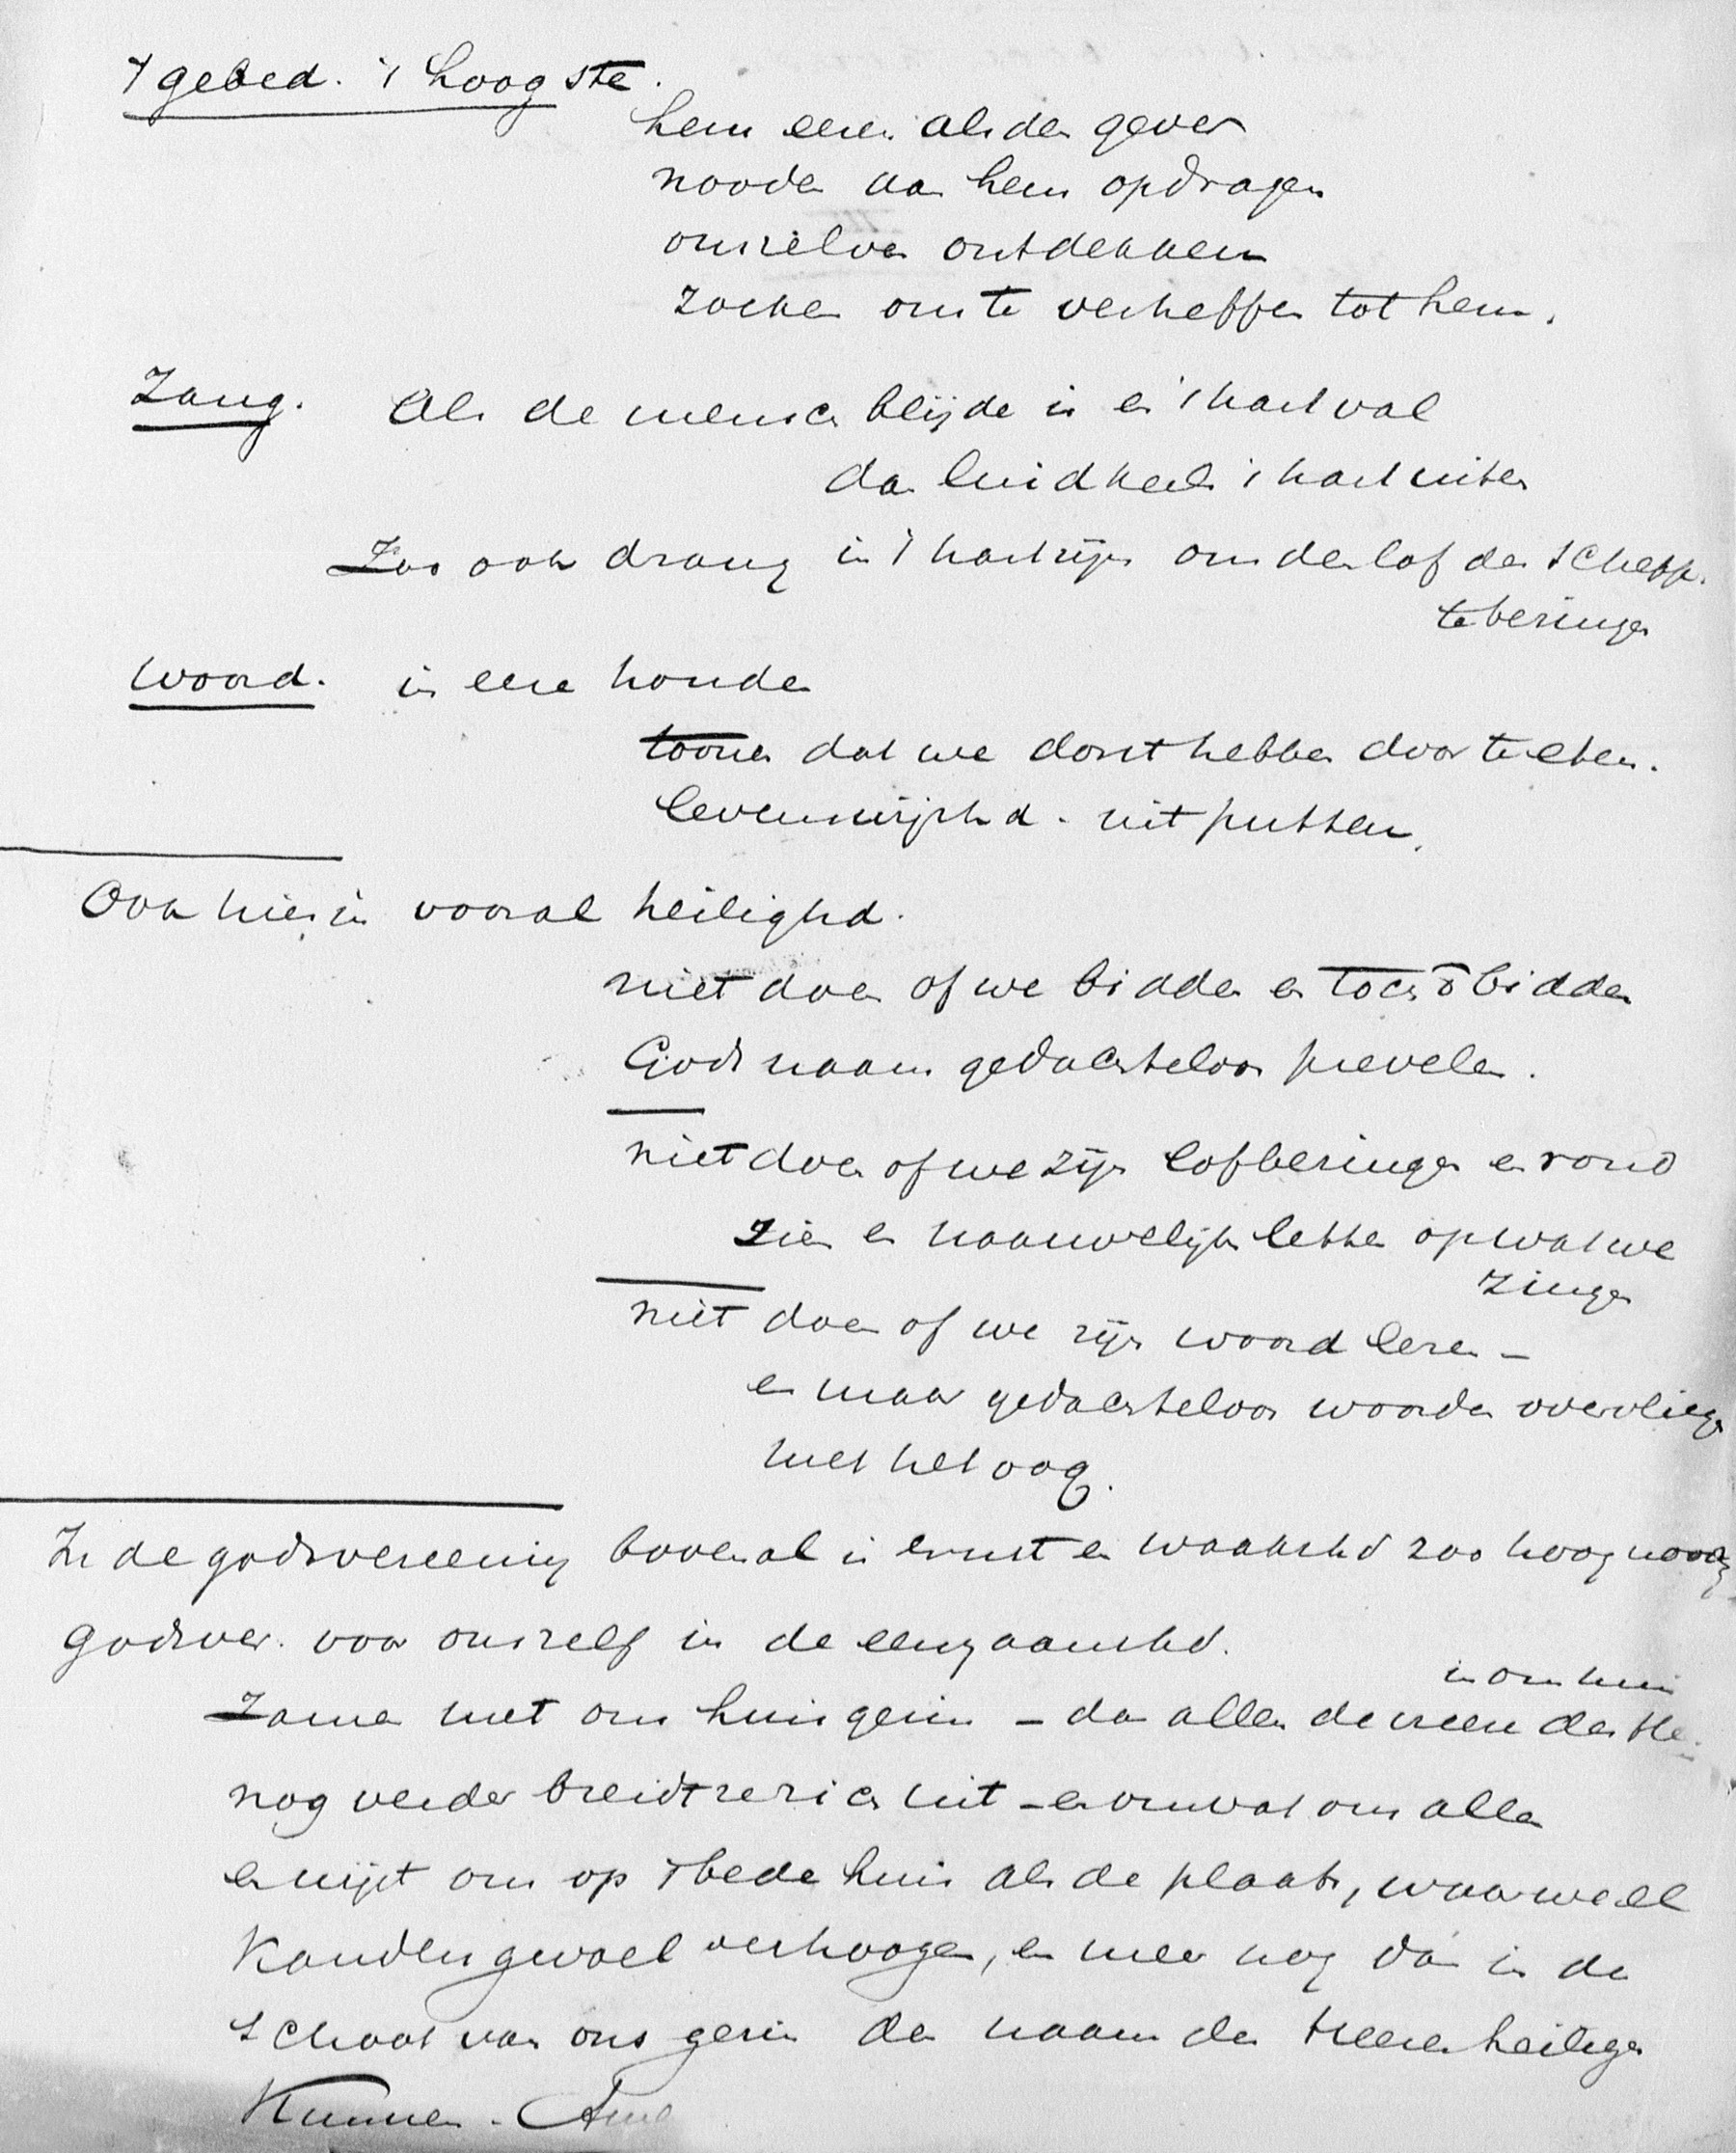 't gebed. 't hoogste.
hem eeren als den gever
nooden aan hem opdragen
onszelven ontdekken
zoeken ons te verheffen tot hem.
Zang. Als de mensch blijde is en 't hart vol
dan luidkeels 't hart uiten
Zoo ook drang in 't hart zijn om den lof des Schepp.
te bezingen
Woord. in eere houden
toonen dat we dorst hebben door te eten.
levenswijshd. uit putten.
Ook hierin vooral heilighd.
niet doen of we bidden en toch õ bidden
Gods naam gedachteloos prevelen.
niet doen of we zijn lof bezingen en rond
zien en nauwelijks letten op wat we
zingen
niet doen of we zijn woord lezen –
en maar gedachteloos woorden overvliegen
met het oog.
In de godsvereering bovenal is ernst en waarhd zoo hoog noodig
Godsver. voor onszelf in de eenzaamhd.
Zamen met ons huisgezin – dan allen de vreeze des He.
in ons huis
nog verder breidt ze zich uit – en omvat ons allen
en wijst ons op 't bedehuis als de plaats, waar we el
kanders gevoel verhoogen, en meer nog dan in den
schoot van ons gezin den naam des Heeren heiligen
Kunnen. Amen